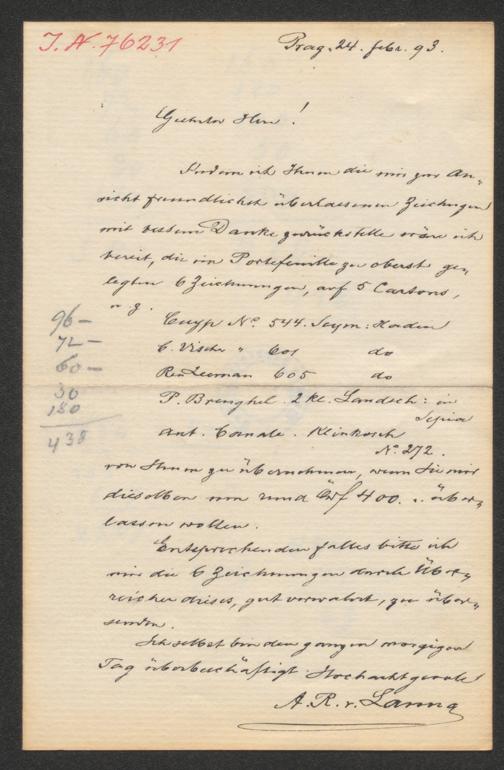 I. N. 76231
Prag. 24. febr. 93.
Geehrter Herr!
Indem ich Ihnen die mir zur An-
sicht freundlichst überlassenen Zeichnungen
mit bestem Danke zurückstelle wäre ich
bereit, die im Portefeuille zu oberst ge-
legten 6 Zeichnungen, auf 5 Cartons,
u. z.
96 –
72 –
60 –
30
180
438
Cuyp No. 544. Seym: Haden
C. Vischer " 601 do
Rs. Zeeman 605 do
P. Breughel. 2 kl. Landsch: in
Sepia
Ant. Canale. Klinkosch
No. 272.
von Ihnen zu übernehmen, wenn Sie mir
dieselben um rund Öwf 400. . über-
lassen wollen.
Entsprechenden falles bitte ich
mir die 6 Zeichnungen durch Über-
reicher dieses, gut verwahrt, zu über-
senden.
Ich selbst bin den ganzen morgigen
Tag überbeschäftigt. Hochachtungsvoll
A. R. v. Lanna